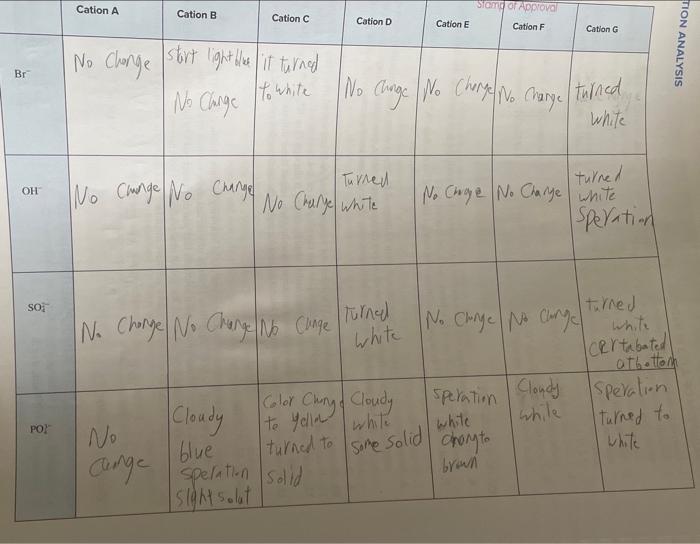 Stamp of Approval
TION ANALYSIS
Cation A
Cation B
Cation C
Cation D
Cation E
Cation F
Cation G
Br⁻
No Change
start light blue
No Change
it turned
to white
No Change
No Change
No Change
turned
white
OH⁻
No Change
No Change
No Change
Turned
white
No Change
No Change
turned
white
Speration
SO₄²⁻
No Change
No Change
No Change
Turned
white
No Change
No Change
turned
white
at bottom
PO₄³⁻
No
Change
Cloudy
blue
speration
slight
Color Change
to yellow
turned to
solid
Cloudy
white
some solid
Speration
white
brown
Cloudy
white
Speration
turned to
white